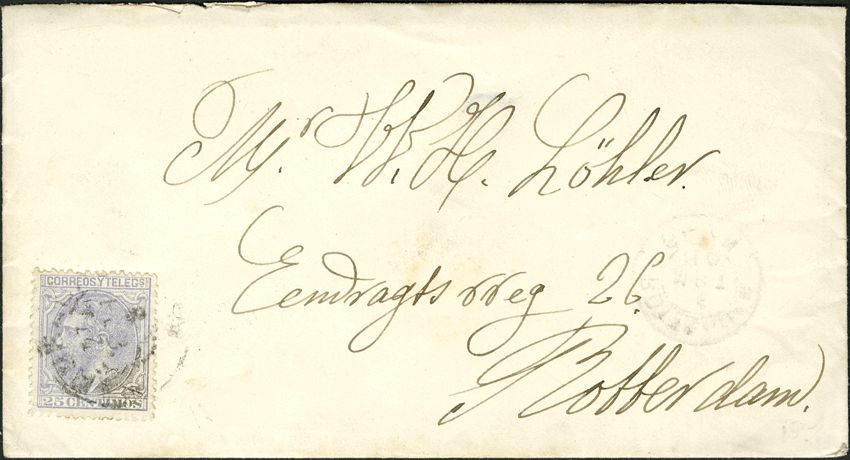 Mr. W. H. Löhler.
Eendragtsweg 26.
Rotterdam.
CORREOS Y TELEGS
25 CENTIMOS